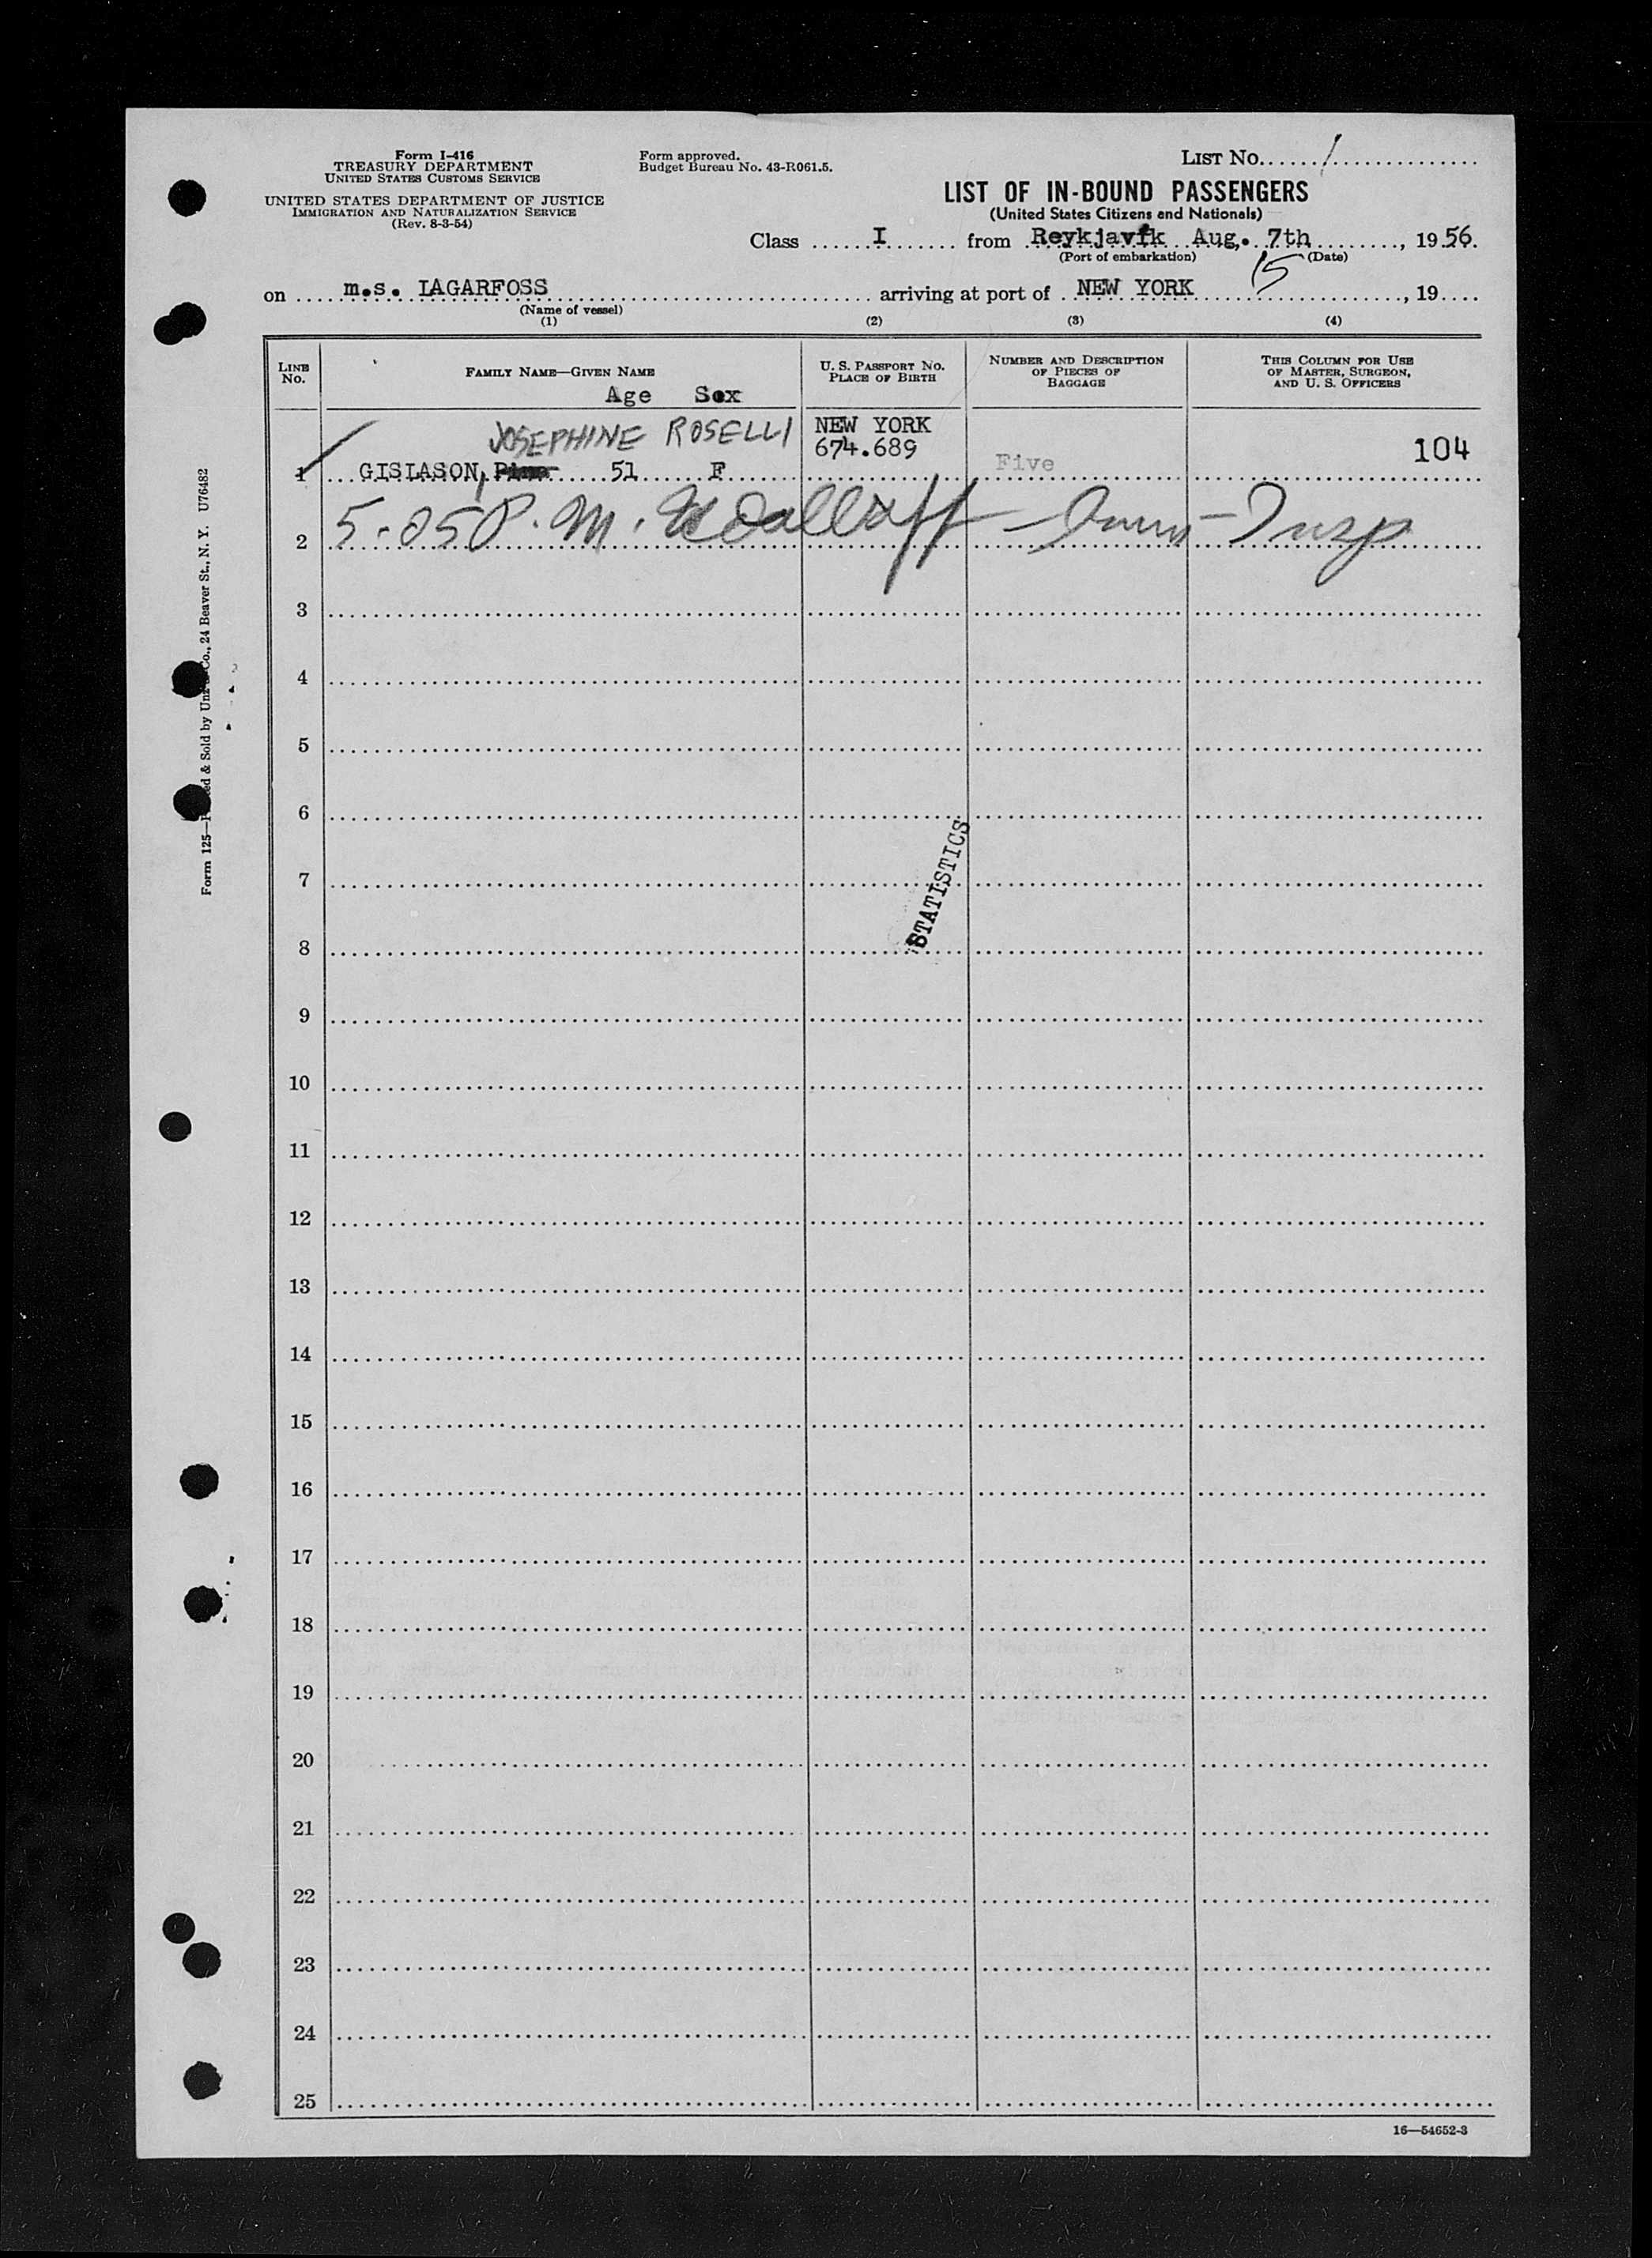 Form I-416
TREASURY DEPARTMENT
UNITED STATES CUSTOMS SERVICE
UNITED STATES DEPARTMENT OF JUSTICE
IMMIGRATION AND NATURALIZATION SERVICE
(Rev. 8-3-54)
Form approved.
Budget Bureau No. 43-R061.5.
LIST No. 1
LIST OF IN-BOUND PASSENGERS
(United States Citizens and Nationals)
Class I from Reykjavik Aug. 7th, 1956.
(Port of embarkation) (Date)
on m.s. LAGARFOSS arriving at port of NEW YORK 15, 19
(Name of vessel)
(1) (2) (3) (4)
LINE No. FAMILY NAME—GIVEN NAME U. S. PASSPORT No. PLACE OF BIRTH NUMBER AND DESCRIPTION OF PIECES OF BAGGAGE THIS COLUMN FOR USE OF MASTER, SURGEON, AND U. S. OFFICERS
Age Sex
JOSEPHINE ROSELLI NEW YORK
674.689 104
1 GISLASON, 51 F Five
2 5-05 P.M. Insp
3
4
5
6
7
8
STATISTICS
9
10
11
12
13
14
15
16
17
18
19
20
21
22
23
24
25
16—54652-3
Form 125— & Sold by Co., 24 Beaver St., N. Y. U76482